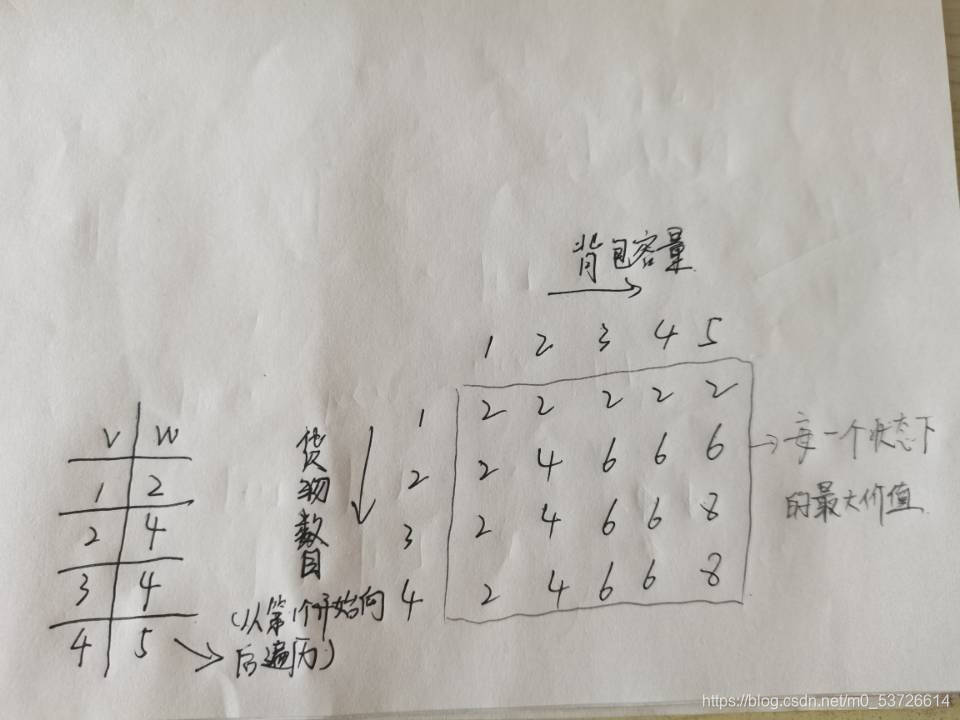 背包容量
1 2 3 4 5
1 2 2 2 2 2
2 2 4 6 6 6
3 2 4 6 6 8
4 2 4 6 6 8
每一个状态下
的最大价值
货物数目
(以第1个开始向
后遍历)
V W
1 2
2 4
3 4
4 5
https://blog.csdn.net/m0_53726614